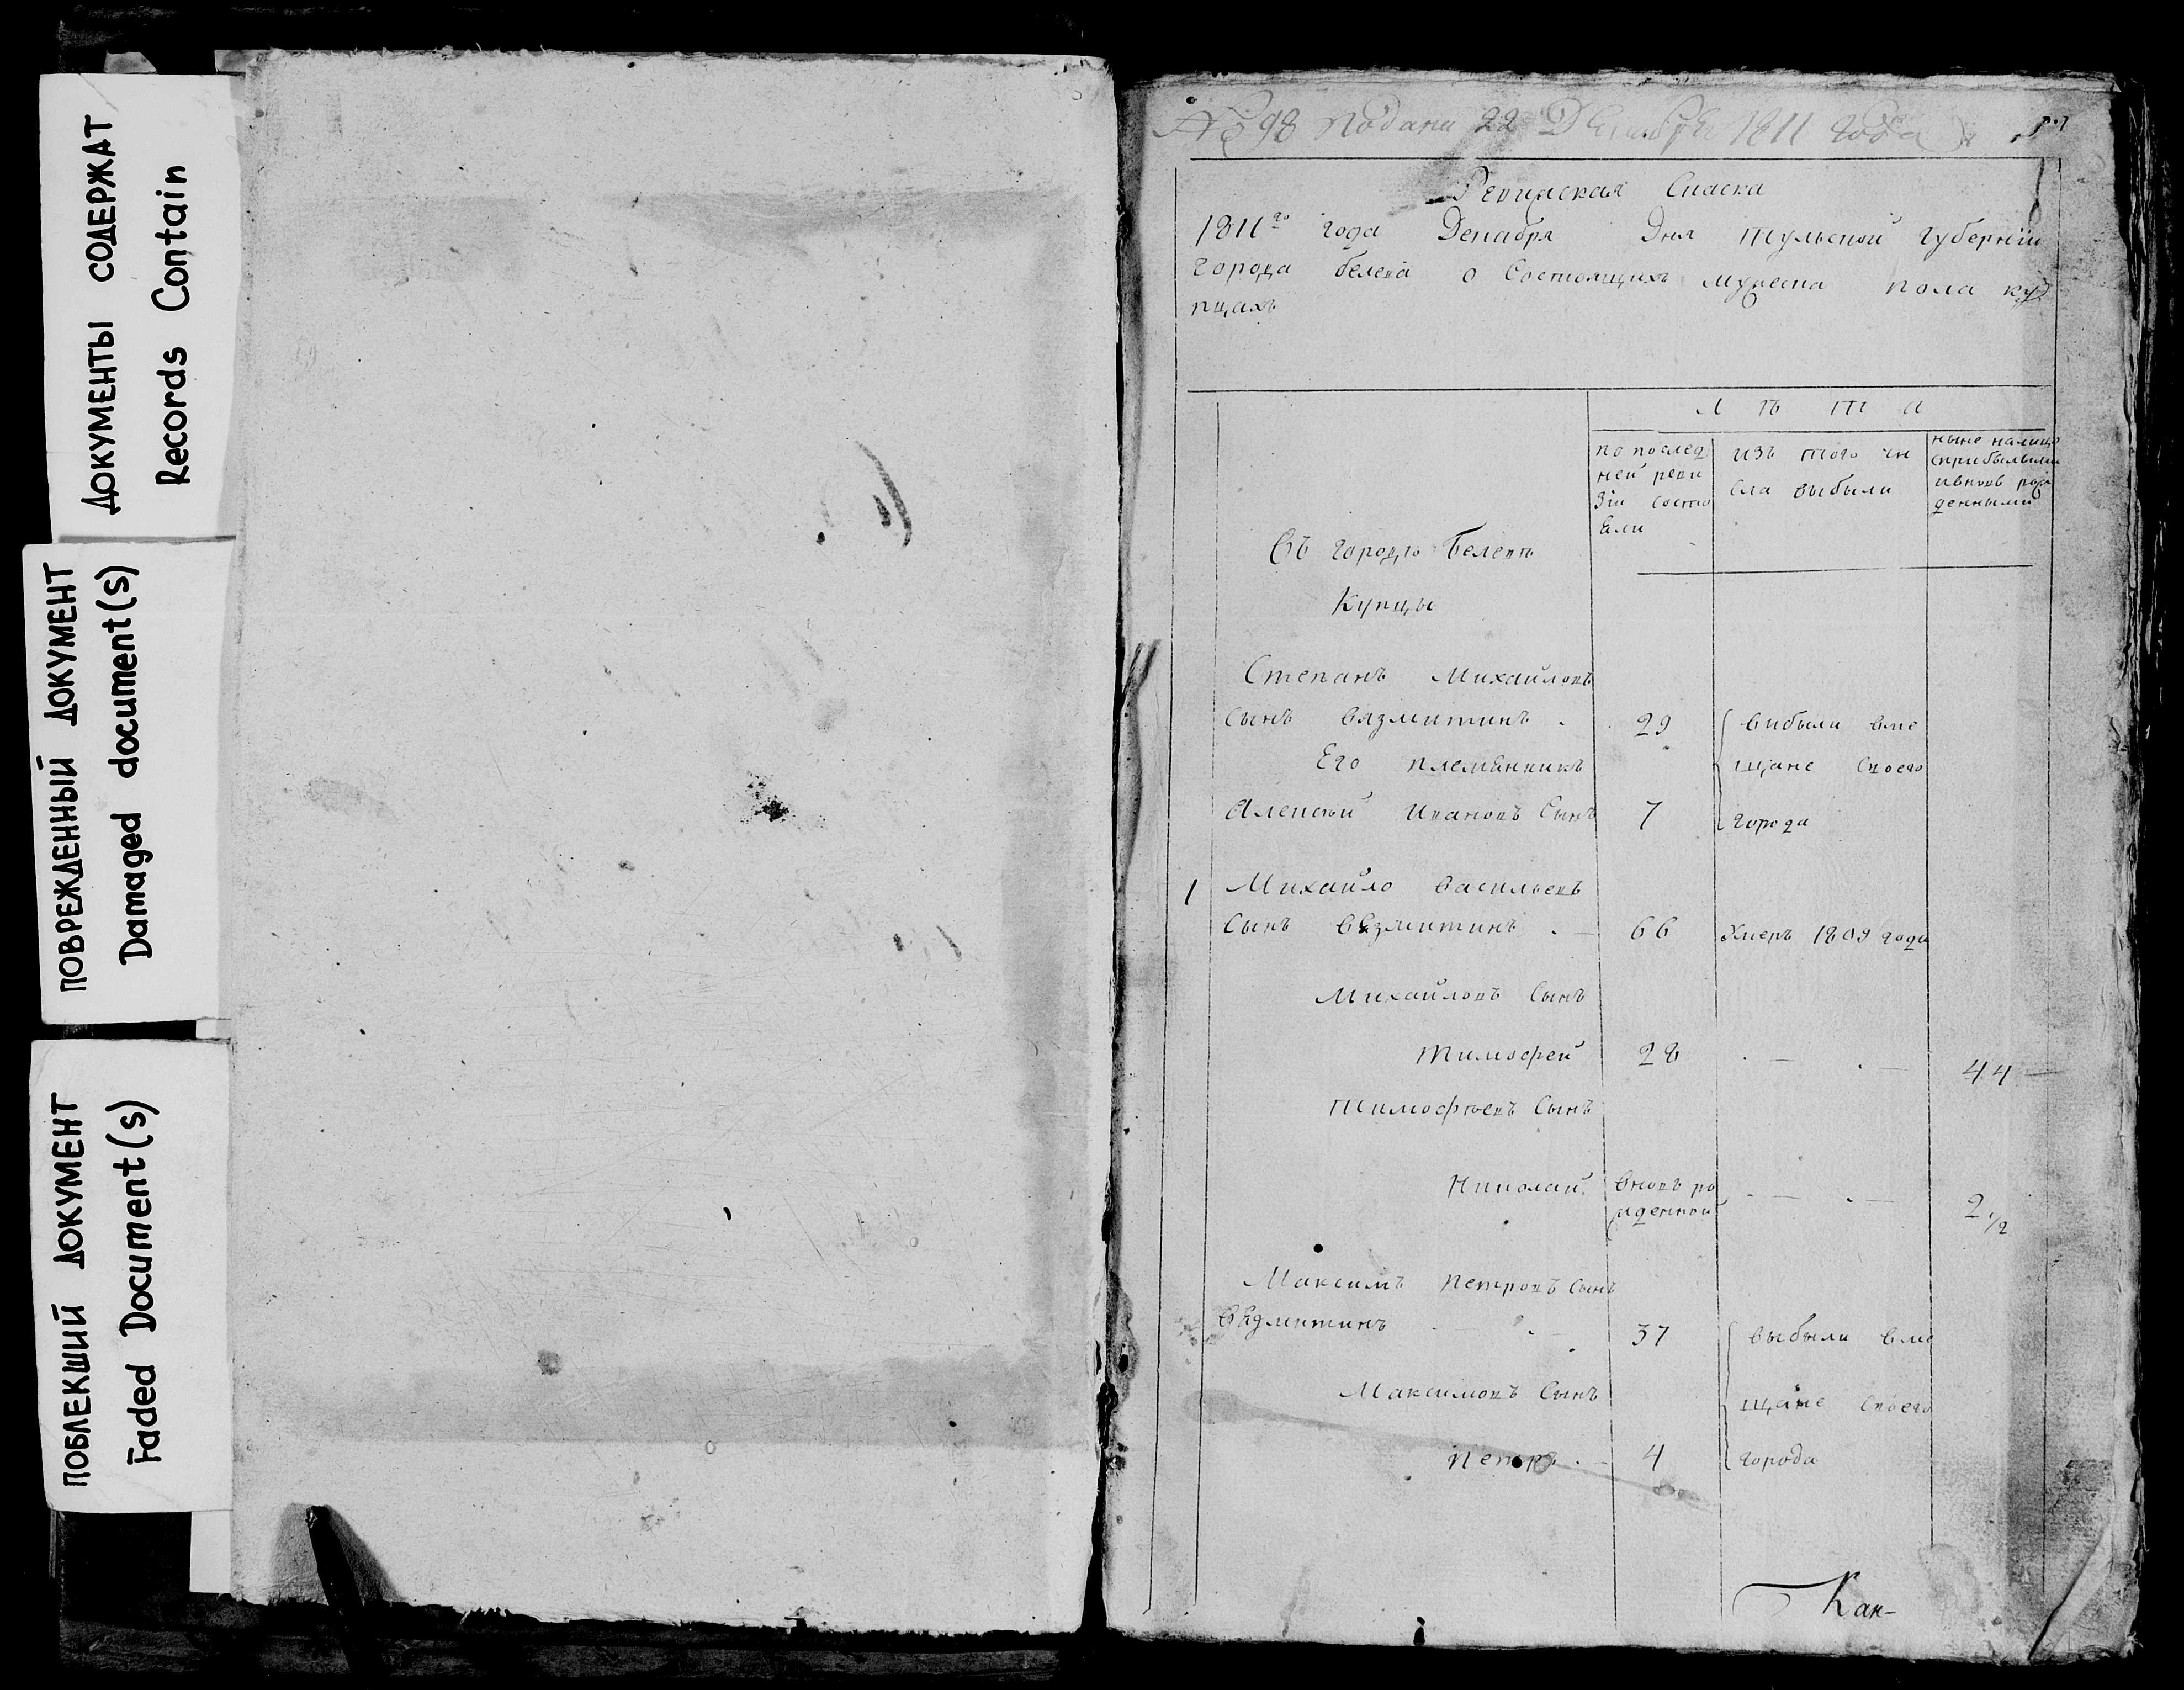 ДОКУМЕНТЫ СОДЕРЖАТ
Records Contain
ПОВРЕЖДЕННЫЙ ДОКУМЕНТ
Damaged document(s)
ПОБЛЕКШИЙ ДОКУМЕНТ
Faded Document(s)
№ 98 подана 22 Декабря 1811 года
Ревижская Скаска
1811го года Декабря дня Тульской губерніи
города белева о Состоящихъ мужеска пола ку
пцахъ
Л Ѣ Т А
по послед
ней реви
зіи состо
яли
изъ того чи
сла выбыли
ныне налицо
сприбылыми
ивновь рож
денными
Въ городѣ Белевѣ
Купцы
Степанъ Михайловъ
сынъ вязмитинъ 29 выбыли вме
Его племянникъ щане своего
Алексѣй Ивановъ Сынъ 7 города
1 Михайло Васильевъ
Сынъ Вязмитинъ 66 Умеръ 1809 года
Михайловъ Сынъ
Тимофей 28 44
Тимофѣевъ Сынъ
Николай вновь ро
жденной 2 1/2
Максимъ Петровъ Сынъ
Вязмитинъ 37 выбыли вме
Максимовъ Сынъ щане своего
Петръ 4 города
Кан-